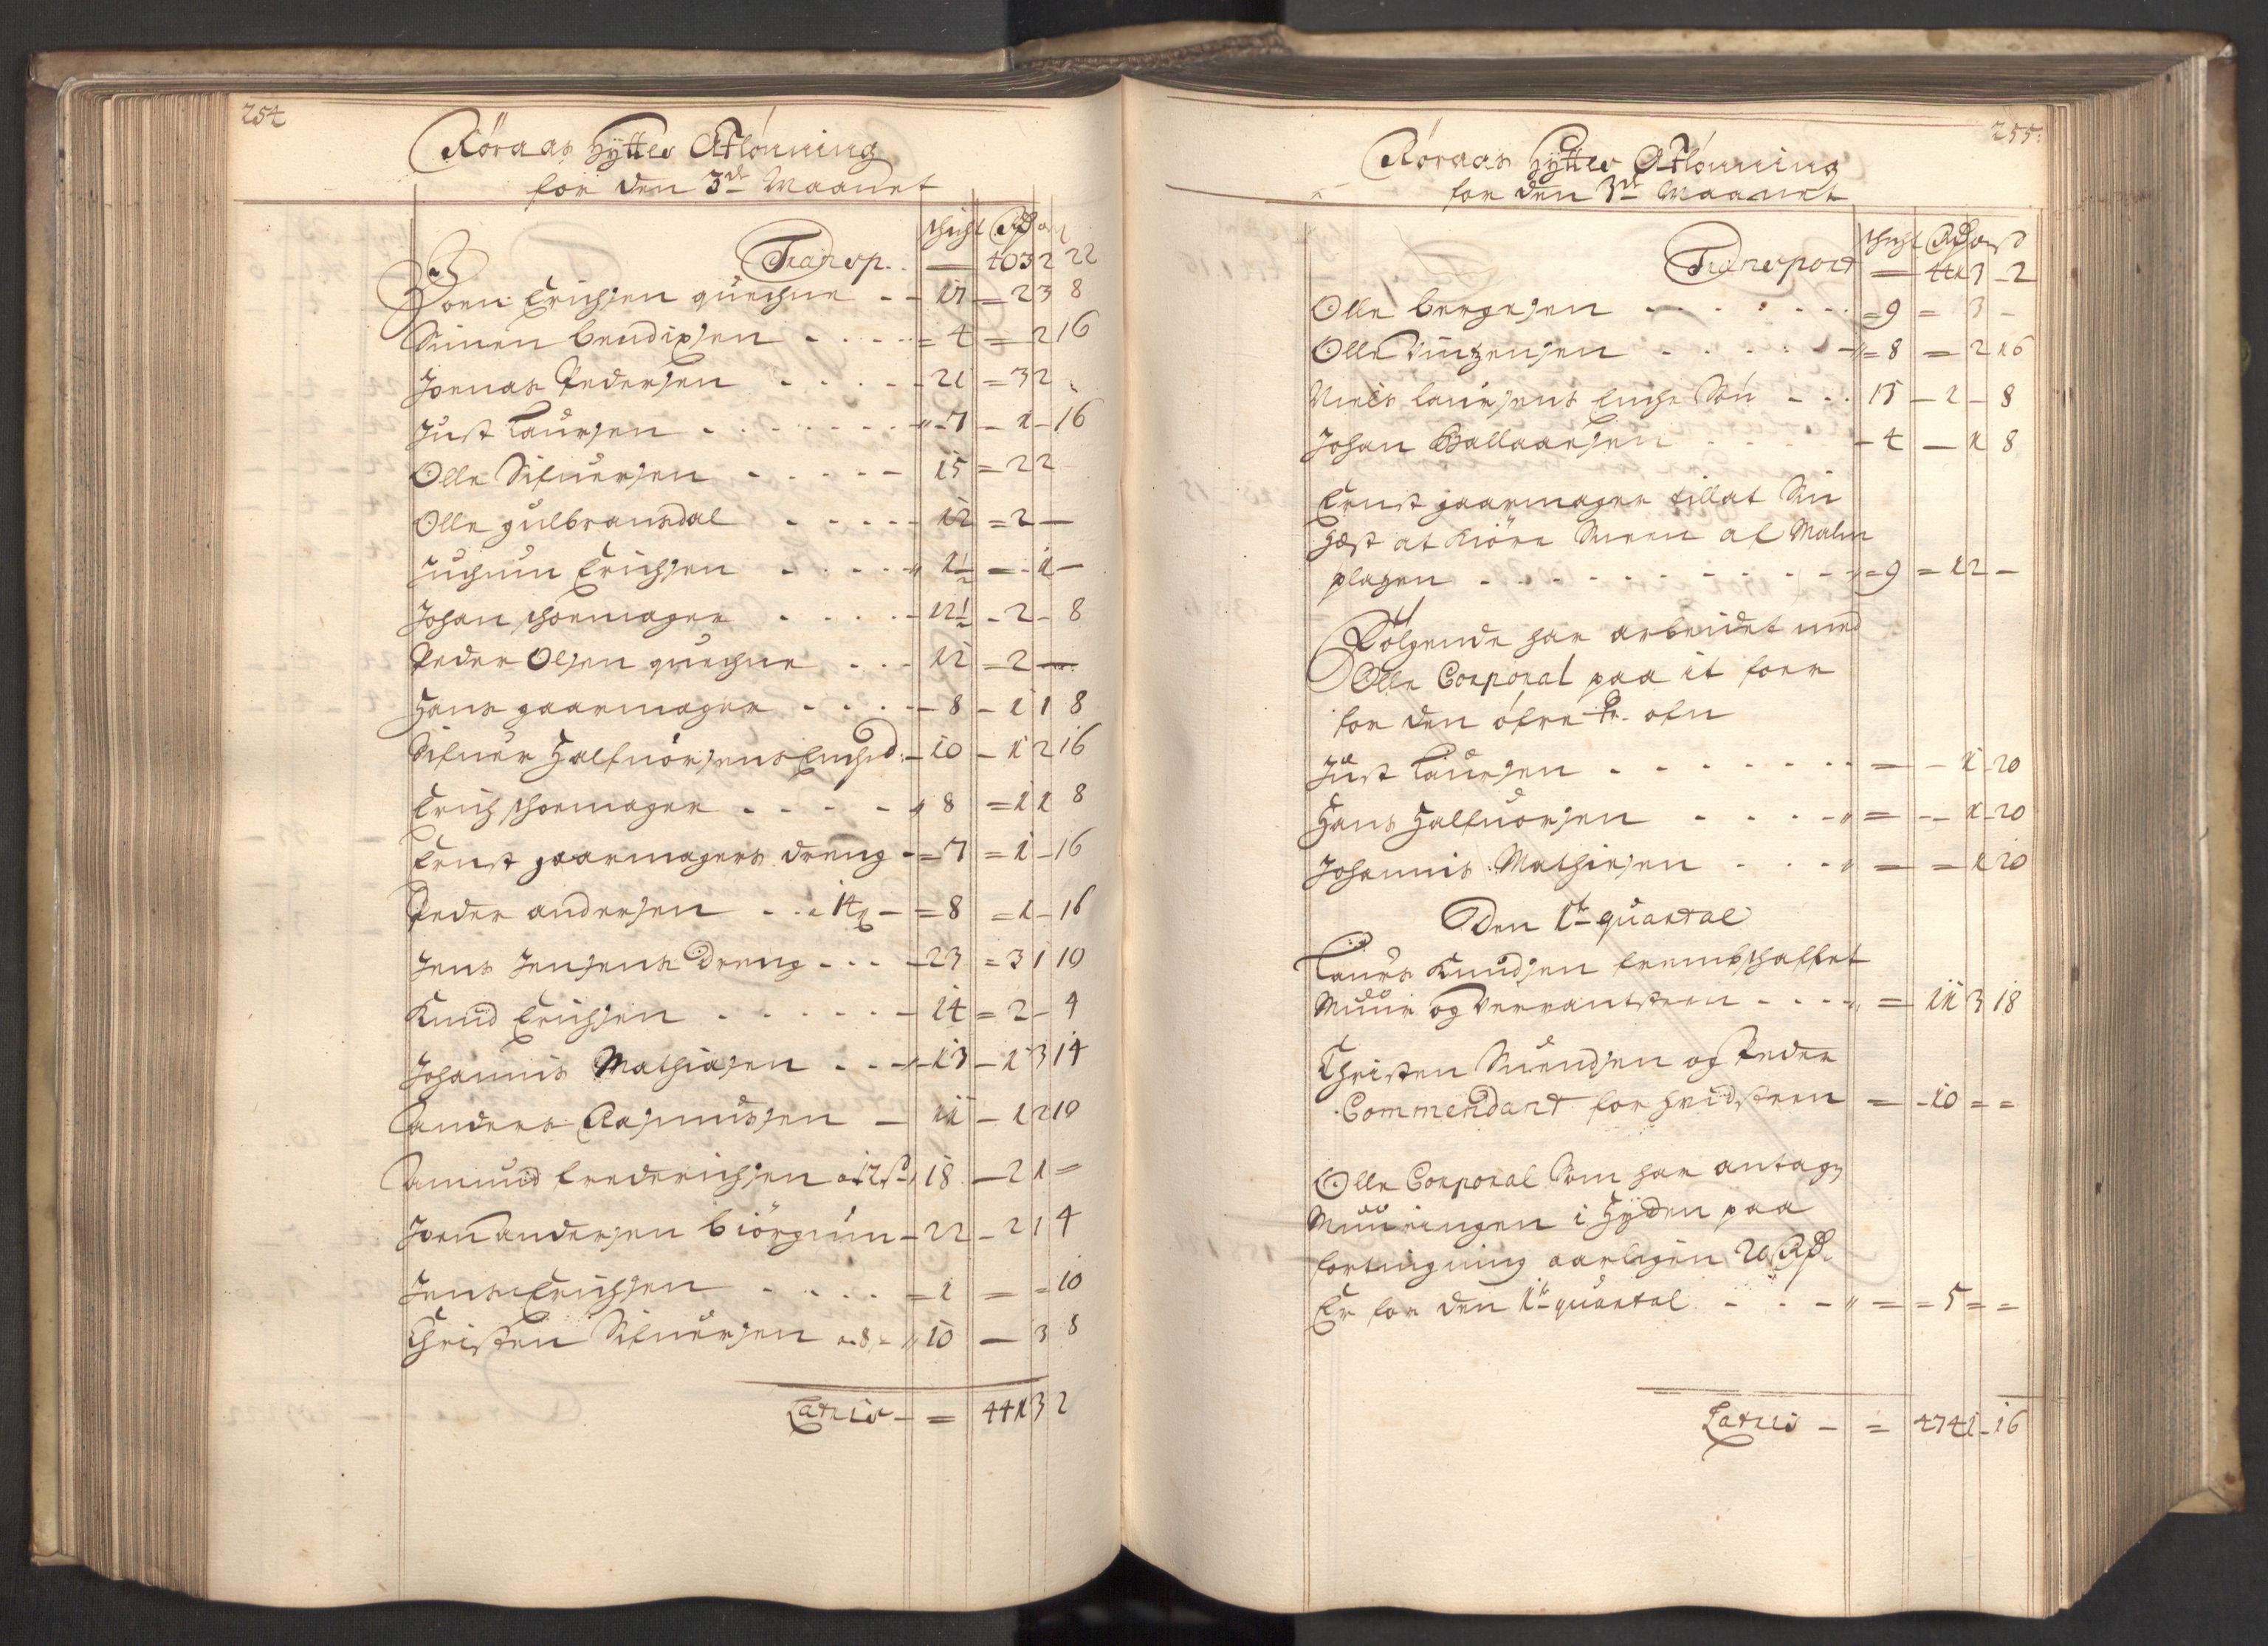 254
Röraas Hÿtter Aflönning
for den 3de Maanet
schicht Rd ort
Transp. — 403 2 22
Joen Erichsen quechne - - 17 = 2 3 8
Simen bendixsen - - - - = 4 = 2 16
Joenas Pedersen - - - - 21 = 3 2
Just Laursen - - - - - 7 - 1 - 16
Olle Sifuersen - - - - - 15 = 2 2
Olle gulbransdal - - - - - 12 = 2 —
Juchum Erichsen - - - - 1½ = - 1 —
Johan schoemager - - - - 12½ - 2 - 8
Peder Olsen quechne - - - 12 = 2 —
Hans gaarmager - - - - - 8 - 1 1 8
Sifuer Halfuorsens Enched: - 10 - 1 2 16
Erich schoemager - - - - 8 = 1 1 8
Ernst gaarmagers dreng - = 7 = 1 - 16
Peder andersen - - a 14 s - = 8 = 1 - 16
Jens Jensens Dreng - - - - 23 = 3 1 10
Knud Erichsen - - - - - - 14 = 2 - 4
Johannis Mathiasen - - - 13 - 1 3 14
anders Rasmussen — 11 - 1 2 10
Amund frederichsen a 12 s - 18 - 2 1 =
Joen andersen biörgum - 22 - 2 1 4
Jens Erichsen - - - - = 1 = = 10
Christen Sifuersen a 8 = 10 — 3 8
Latris - = 441 3 2
255:
Röraas Hÿtter Aflönning
for den 3de Maanet
schicht Rd ort s
Transport — 441 3 - 2
Olle bergesen - - - - - - = 9 = 3 -
Olle Vinzensen - - - - - = 8 = 2 16
Niels laursens Enche Sön - - - 15 - 2 - 8
Johan Hallaarsen - - - - 4 — 1 8
Ernst gaarmager tillat Sin
Hest at kiöre Steen af Malm
plazen - - - - - - - - = 9 = 1 2 -
Følgende har arbeidet med
Olle Corporal paa it foer
for den öfre Kr. ofn
Just Laursen - - - - - - = - 1 - 20
Hans Halfuorsen - - - - = - - 1 - 20
Johannis Mathiesen - - - = = 1 20
Den 1te quartal
Laurs Knudsen fremschaffet
Muur og Verrantsteen - - - = 11 3 18
Christen Suendsen og Peder
Commendant for hvidsteen = - 10 = =
Olle Corporal Som har antagz
Muuringen i Hÿtten paa
fortingning aarligen 20 Rd.
Er for den 1te quartal - - - = = 5 = =
Latris - = 474 1 - 16